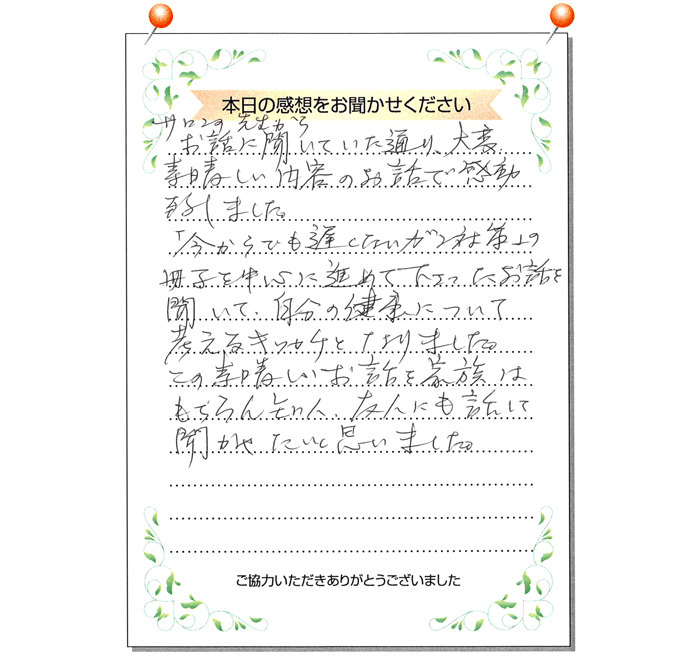 本日の感想をお聞かせください
サロンの先生から
お話に聞いていた通り、大変
素晴しい内容のお話で感動
致しました。
「今からでも遅くないガン対策」の
冊子を中心に進めて下さったお話を
聞いて、自分の健康について
考えるきっかけとなりました。
この素晴しいお話を家族は
もちろん知人、友人にも話して
聞かせたいと思いました。
ご協力いただきありがとうございました